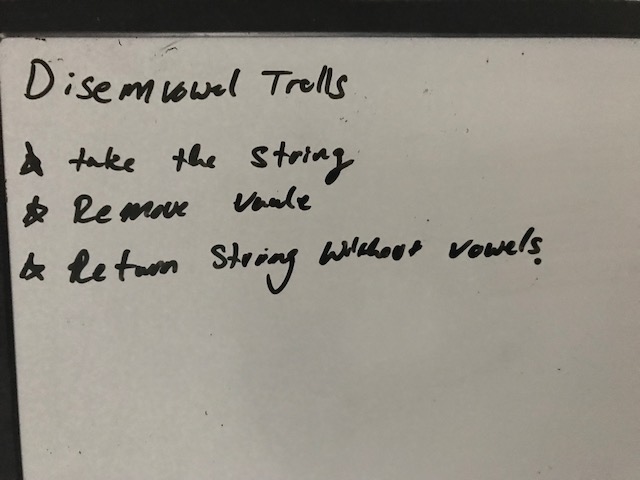 Disemvowel Trolls
* take the string
* Remove vowle
* Return String without vowels.